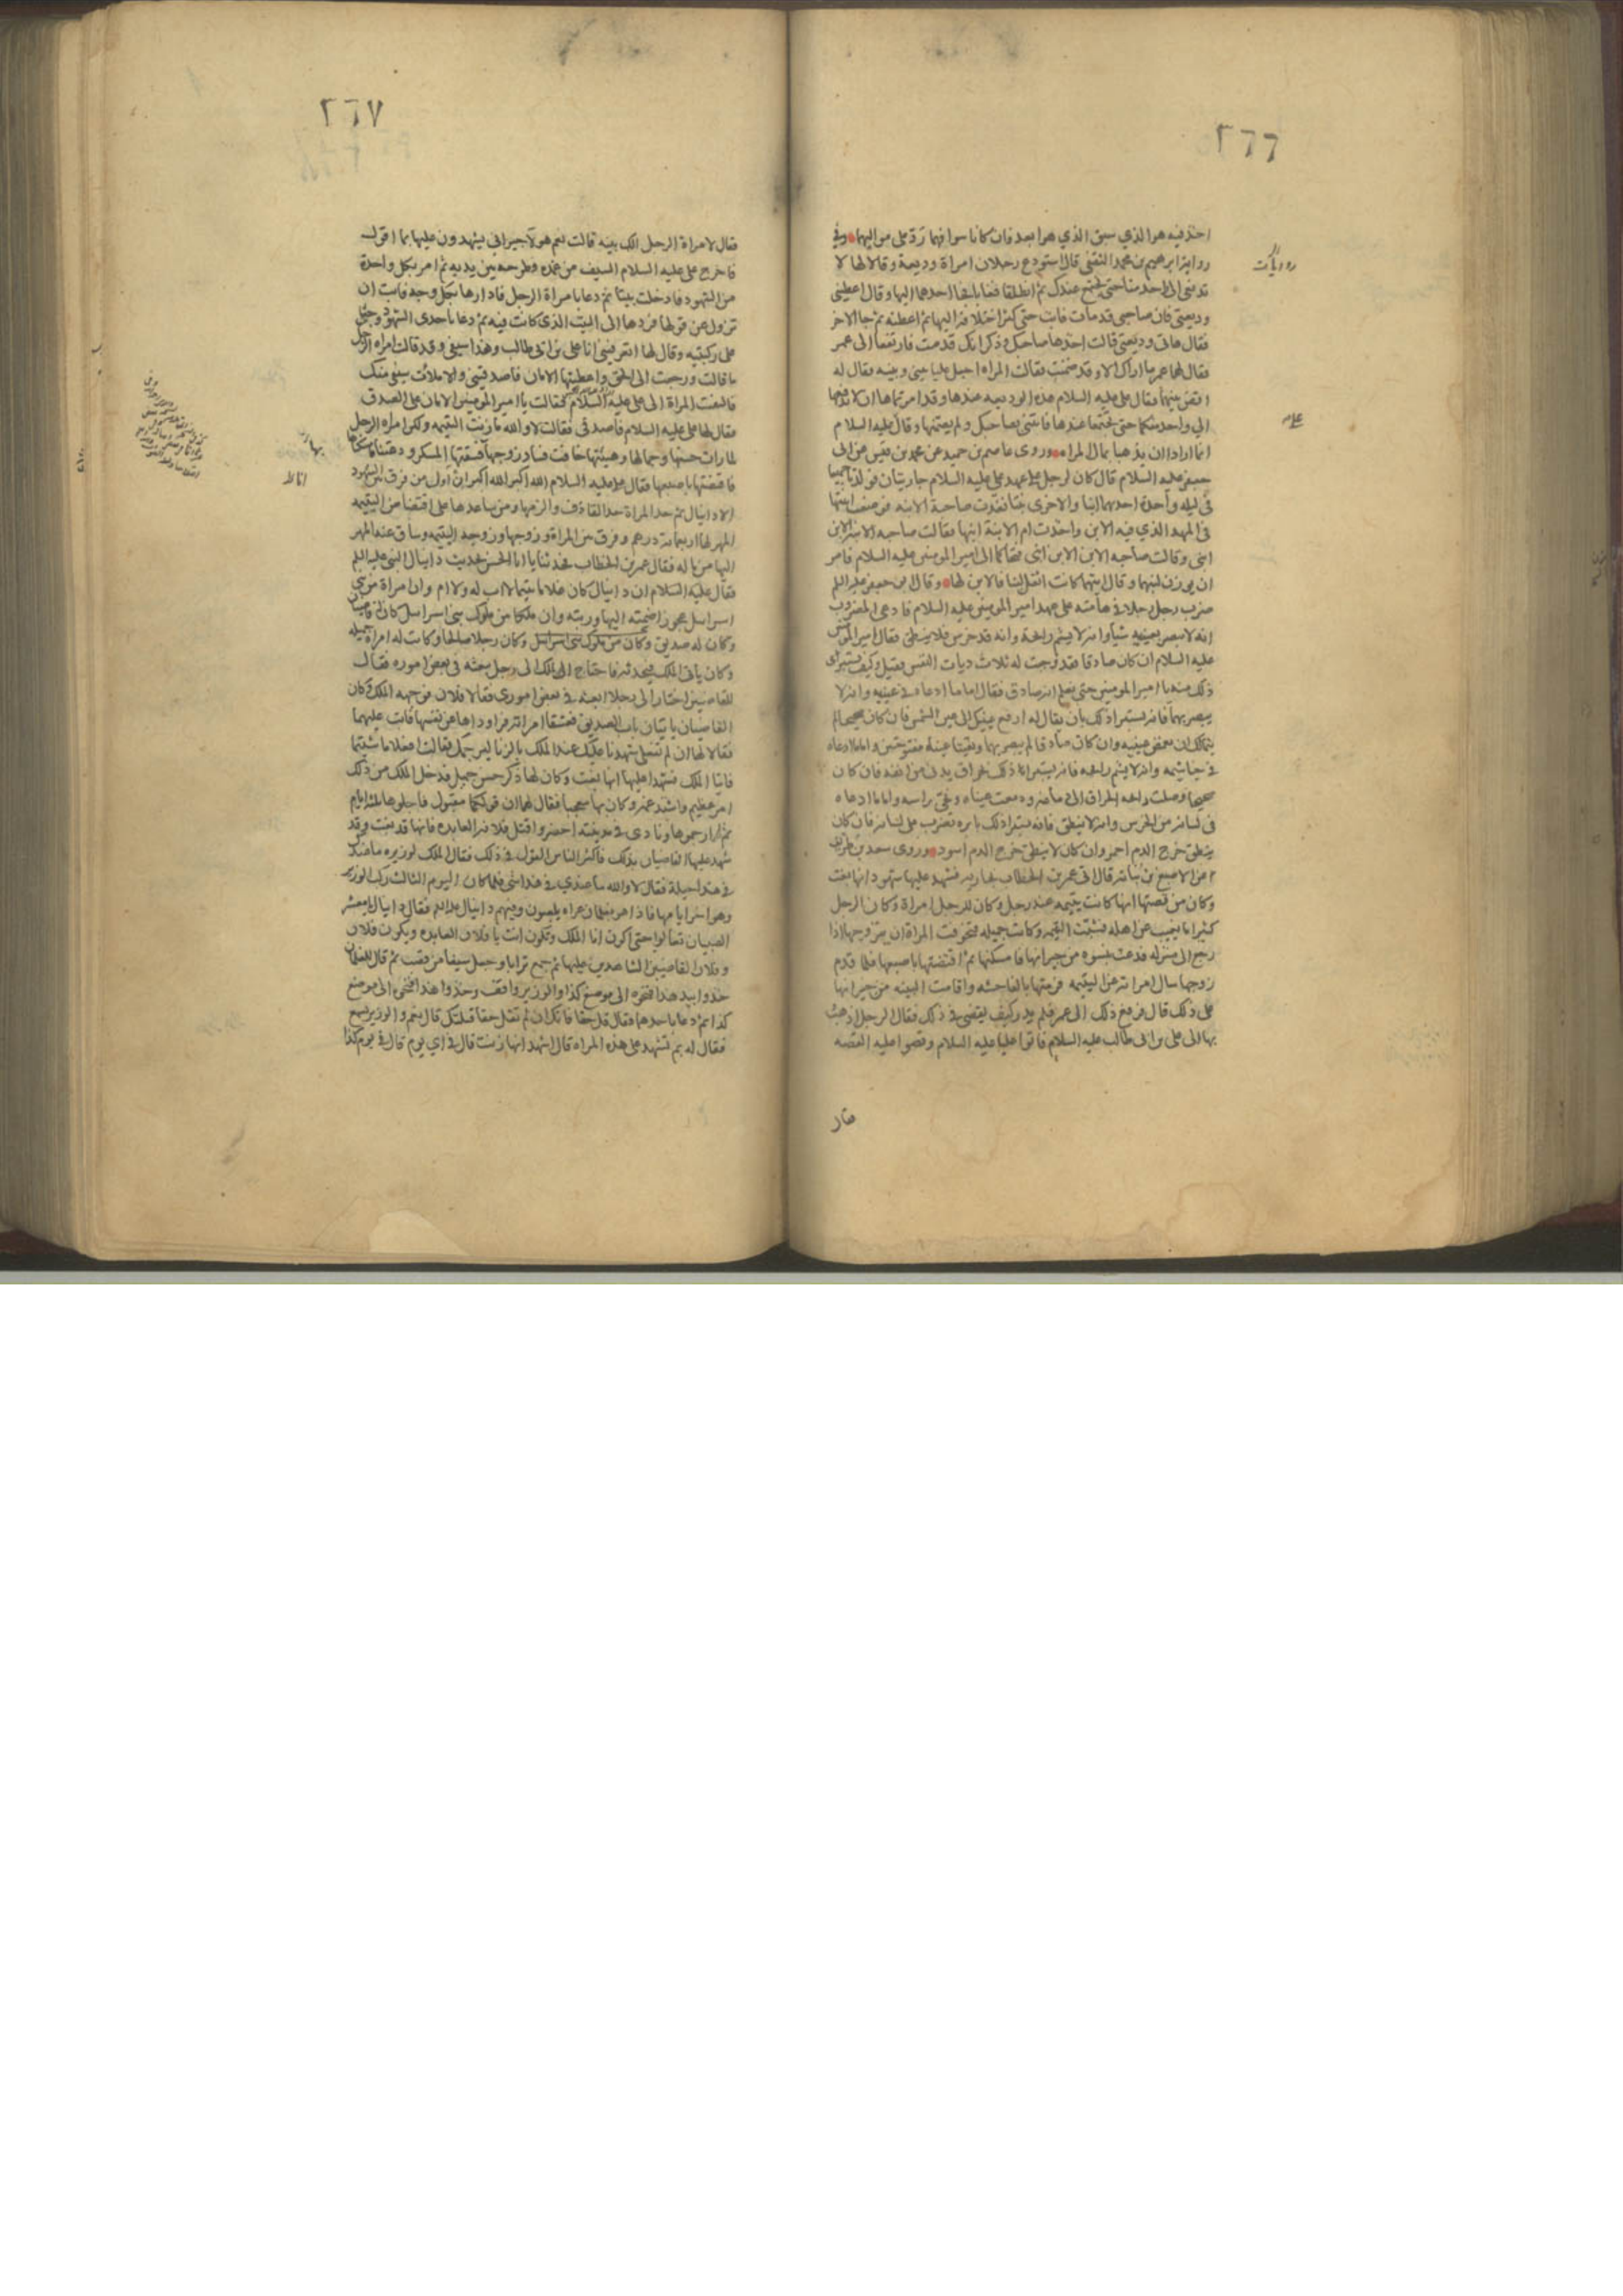 ٢٦٦
اخذ فيه هو الذي سبق الذي هو ابعد فان كانا سوا فهما رد على مواليهما وفي
رواية ابراهيم بن محمد الثقفي قال استودع رجلان امراة وديعة وقالا لها لا
تدفعي الى احد منا حتى نجتمع عندك ثم انطلقا فغابا فجا احدهما اليها وقال اعطيني
وديعتي فان صاحبي قد مات فابت حتى كثر اختلافه اليها ثم اعطته ثم جا الاخر
فقال هاتي وديعتي قالت اخذها صاحبك وذكر انك قد مت فارتفعا الى عمر
فقال لها عمر ما اراك الا وقد ضمنت فقالت المراه اجعل عليا بيني وبينه فقال له
اقض بينهما فقال علي عليه السلام هذه الوديعه عندها وقد امرتماها ان لا تدفعها
الي واحد منكما حتى تجتمعا عندها فاتني بصاحبك ولم يضمنها وقال عليه السلام
انما ارادا ان يذهبا بمال المراه وروى عاصم بن حميد عن محمد بن قيس عن ابى
جعفر عليه السلام قال كان لرجل على عهد علي عليه السلام جاريتان فولدتا جميعا
في ليله واحدة احديهما ابنا والاخرى بنتا فغدت صاحبة الابنه فوضعت ابنتها
في المهد الذي فيه الابن واخذت ابنها فقالت صاحبه الابنه الابن
ابني وقالت صاحبه الابن الابن ابني فتحاكما الى امير المومنين عليه السلام فامر
ان يوزن لبنهما وقال ايتهما كانت اثقل لبنا فالابن لها وقال ابو جعفر عليه السلم
ضرب رجل رجلا في هامته على عهد امير المومنين عليه السلام فادعى المضروب
انه لا يبصر بعينيه شيا وانه لا يشم رايحة وانه قد خرس فلا ينطق فقال امير المومنين
عليه السلام ان كان صادقا فقد وجبت له ثلاث ديات النفس فقيل وكيف يستبرى
ذلك منه يا امير المومنين حتى نعلم انه صادق فقال اما ما ادعاه في عينيه وانه لا
يبصر بهما فانه يستبرا ذلك بان يقال له ارفع عينيك الى عين الشمس فان كان صحيحا لم
يتمالك ان يغمض عينيه وان كان صادقا لم يبصر بهما وبقيتا عيناه مفتوحتين واما ما ادعاه
في خياشيمه وانه لا يشم رايحه فانه يستبرا ذلك بحراق يدنى من انفه فان كان
صحيحا وصلت رايحه الحراق الى دماغه ودمعت عيناه ونحى راسه واما ما ادعاه
في لسانه من الخرس وانه لا ينطق فانه يستبرا ذلك بابره تضرب على لسانه فان كان
ينطق خرج الدم احمر وان كان لا ينطق خرج الدم اسود وروى سعد بن طريف
عن الاصبغ بن نباته قال اتي عمر بن الخطاب بجاريه فشهد عليها شهود انها بغت
وكان من قصتها انها كانت يتيمه عند رجل وكان للرجل امراة وكان الرجل
كثيرا ما يغيب عن اهله فشبت اليتيمه وكانت جميله فتخوفت المراة ان يتزوجها اذا
رجع الى منزله فدعت بنسوه من جيرانها فامسكنها ثم افتضتها باصبعها فلما قدم
زوجها سال امراته عن اليتيمه فرمتها بالفاحشه واقامت البينه من جيرانها
على ذلك قال فرفع ذلك الى عمر فلم يدر كيف يقضى في ذلك فقال الرجل اذهب
بها الى علي بن ابى طالب عليه السلام فاتوا عليا عليه السلام وقصوا عليه القصه
فقال
٢٦٧
فقال لامراة الرجل الك بينه قالت نعم هولا جيراني يشهدون عليها بما اقول
فاخرج على عليه السلام السيف من غمده وطرحه بين يديه ثم امر بكل واحدة
من الشهود فادخلت بيتا ثم دعا بامراة الرجل فادارها بكل وجه فابت ان
تزول عن قولها فردها الى البيت الذى كانت فيه ثم دعا باحدى الشهود وجثى
على ركبتيه وقال لها اتعرفيني انا علي بن ابى طالب وهذا سيفي وقد قالت امراه الرجل
ما قالت ورجعت الى الحق واعطيتها الامان فاصدقيني والا ملات سيفي منك
فالتفت المراة الى على عليه السلام فقالت يا امير المومنين الامان على الصدق
فقال لها على عليه السلام فاصدقى فقالت لا والله ما زنت اليتيمه ولكن امراه الرجل
لما رات حسنها وجمالها وهيئتها خافت فساد زوجها فسقتها المسكر ودعتنا فامسكناها
فافتضتها باصبعها فقال على عليه السلام الله اكبر الله اكبر انا اول من فرق بين الشهود
الا دانيال ثم حد المراة حد القاذف والزمها ومن ساعدها على افتضاض اليتيمه
المهر لها اربعمائة درهم وفرق بين المراة وزوجها وزوجه اليتيمه وساق عنه المهر
اليها من ماله فقال عمر بن الخطاب فحدثنا يا ابا الحسن بحديث دانيال النبي عليه السلم
فقال عليه السلام ان دانيال كان غلاما يتيما لا اب له ولا ام وان امراة من بني
اسرائيل عجوزا ضمته اليها وربته وان ملكا من ملوك بنى اسرائيل كان له قاضيان
وكان له صديق وكان رجلا صالحا وكانت له امراة جميله
وكان ياتى الملك فيحدثه فاحتاج الملك الى رجل يبعثه في بعض اموره فقال
للقاضيين اختارا لى رجلا ابعثه في بعض اموري فقالا فلان فوجهه الملك وكان
القاضيان ياتيان باب الصديق فعشقا امراته فراوداها عن نفسها فابت عليهما
فقالا لها ان لم تفعلى شهدنا عليك عند الملك بالزنا ليرجمك فقالت افعلا ما شئتما
فاتيا الملك فشهدا عليها انها بغت وكان لها ذكر حسن جميل فدخل الملك من ذلك
امر عظيم واشتد غمه وكان بها معجبا فقال لهما ان قولكما مقبول فاجلوها ثلثه ايام
ثم ارجموها ونادى في مدينته احضروا قتل فلانه العابده فانها قد بغت وقد
شهد عليها القاضيان بذلك فاكثر الناس القول في ذلك فقال الملك لوزيره ما عندك
في هذا حيلة فقال لا والله ما عندي في هذا شى فلما كان اليوم الثالث ركب الوزير
وهو اخر ايامها فاذا هو بغلمان عراه يلعبون وفيهم دانيال عليه السلم فقال دانيال يا معشر
الصبيان تعالوا حتى اكون انا الملك وتكون انت يا فلان العابده ويكون فلان
وفلان القاضيين الشاهدين عليها ثم جمع ترابا وجعل سيفا من قصب ثم قال للغلمان
خذوا بيد هذا فنحوه الى موضع كذا والوزير واقف وخذوا هذا فنحوه الى موضع
كذا ثم دعا باحدهما فقال قل حقا فانك ان لم تقل حقا قتلتك قال نعم والوزير يسمع
فقال له بم تشهد على هذه المراه قال اشهد انها زنت قال في اي يوم قال في يوم كذا